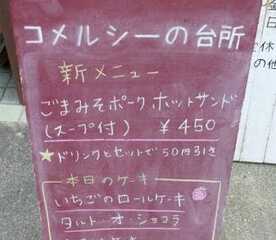 コメルシーの台所
新メニュー
ごまみそポーク、ホットサンド
(スープ付) ¥450
★ドリンクとセットで50円引き
本日のケーキ
いちごのロールケーキ
タルト・オ・ショコラ
日
休
の他